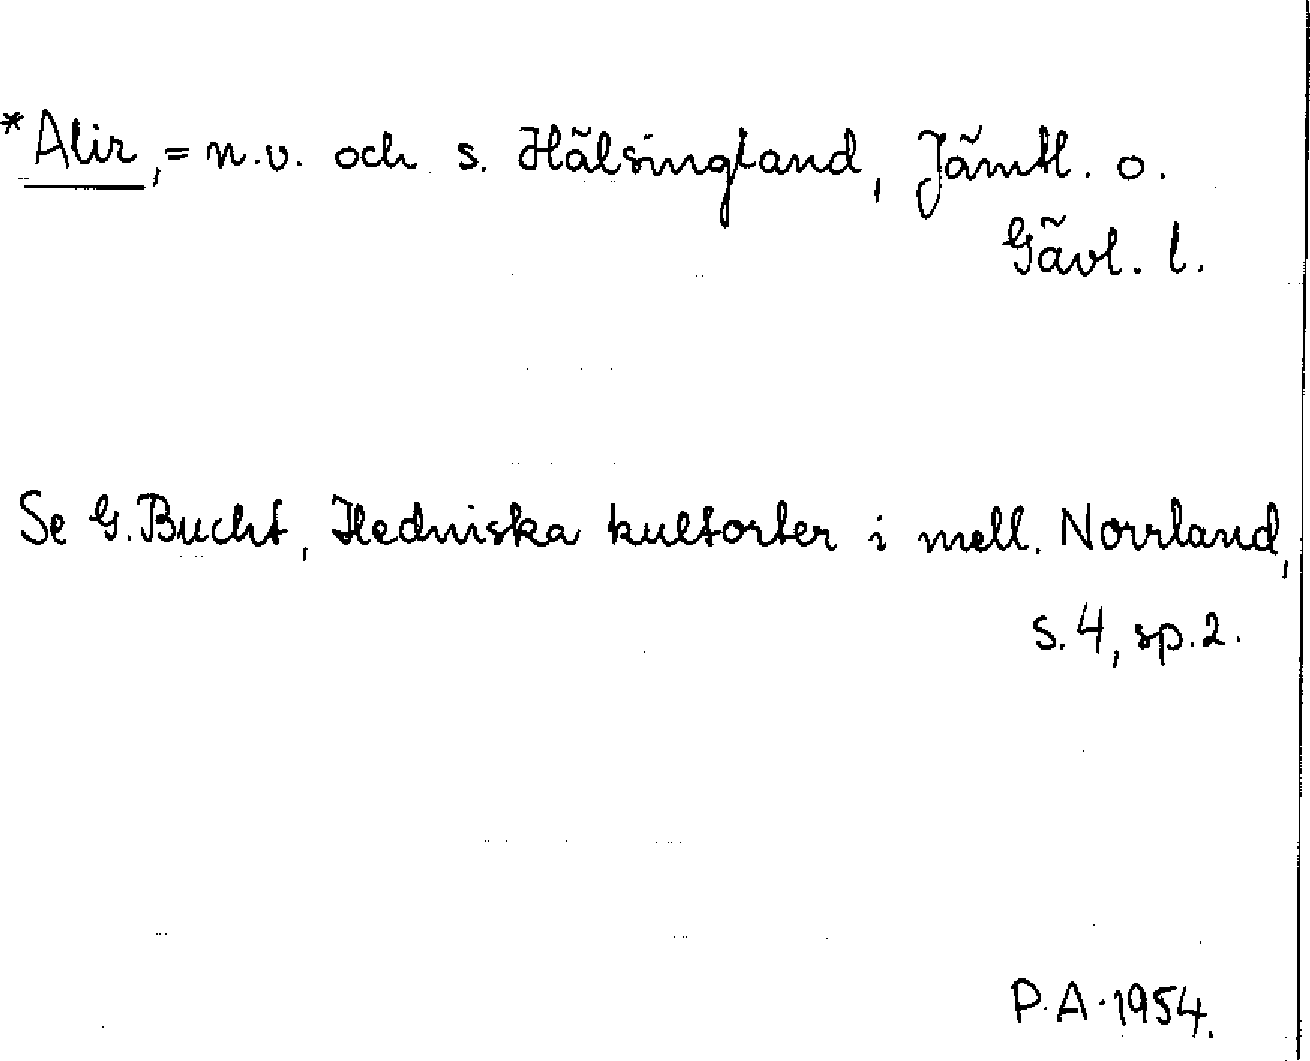 *Alir, = n.v. och s. Hälsingland, Jämtl. o.
Gävl. l.
Se G. Bucht, Hedniska kultorter i mell. Norrland,
s. 4, sp. 2.
P.A. 1954.